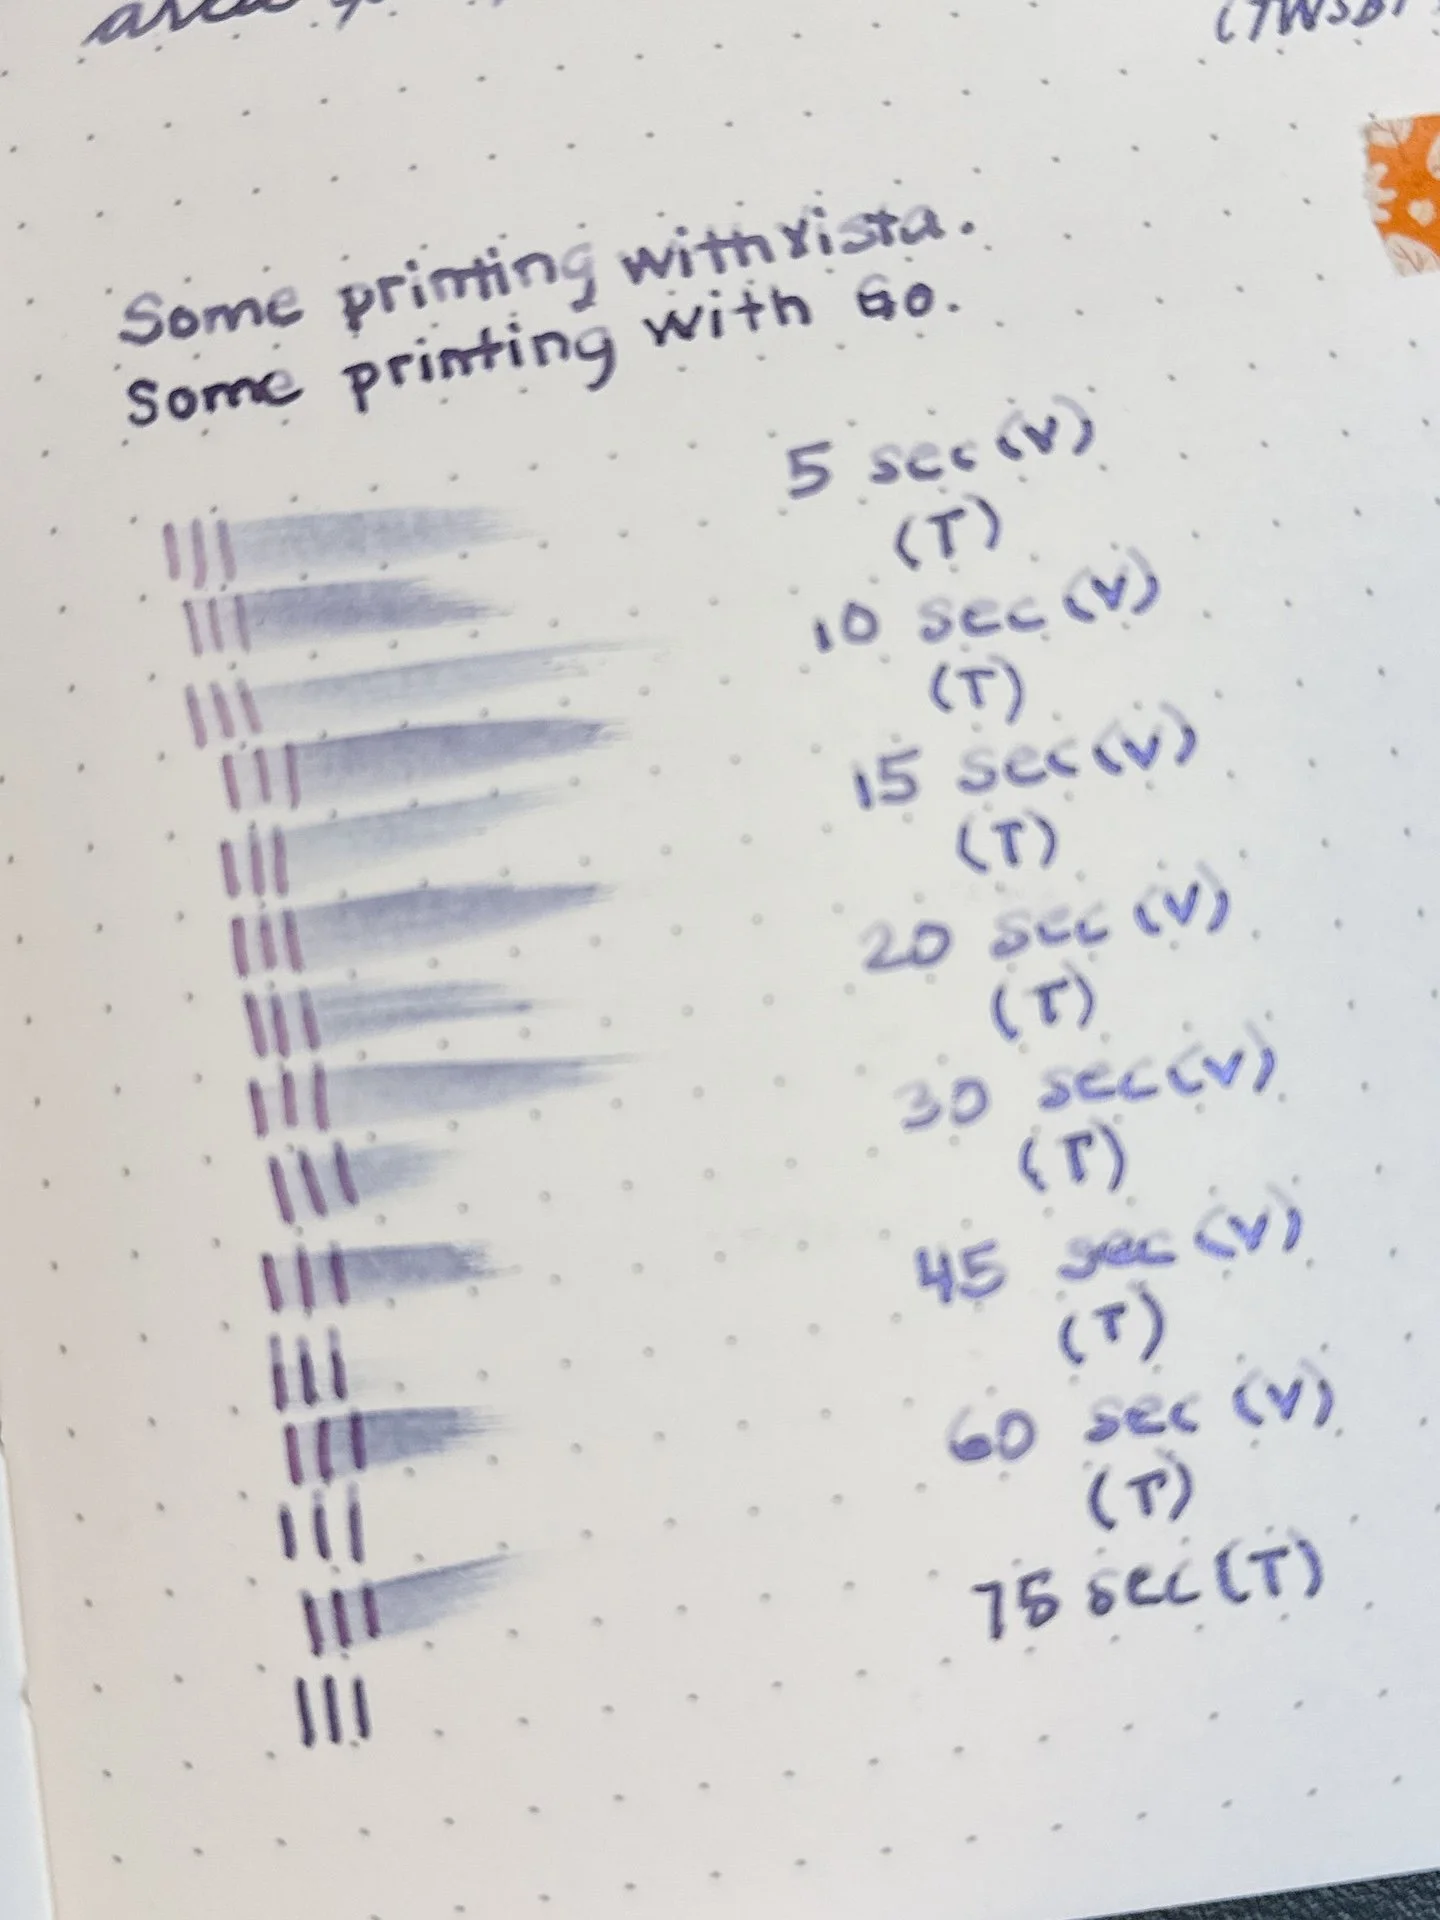 (TWSBI
Some printing with vista.
Some printing with Go.
5 sec (V)
(T)
10 sec (V)
(T)
15 sec (V)
(T)
20 sec (V)
(T)
30 sec (V)
(T)
45 sec (V)
(T)
60 sec (V)
(T)
75 sec (T)